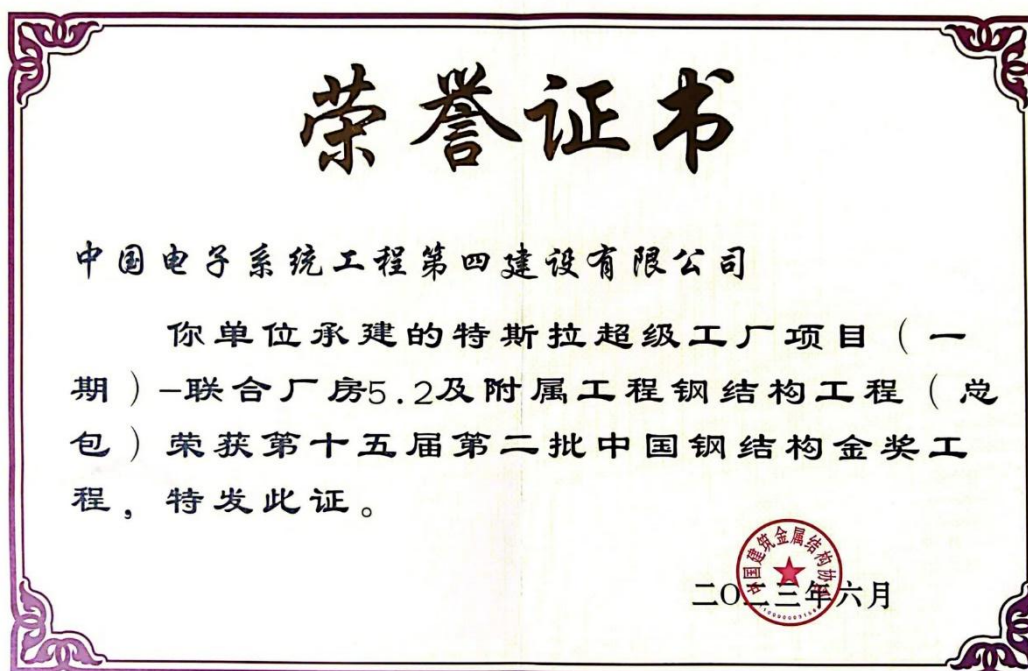 荣誉证书
中国电子系统工程第四建设有限公司
你单位承建的特斯拉超级工厂项目（一
期）-联合厂房5.2及附属工程钢结构工程（总
包）荣获第十五届第二批中国钢结构金奖工
程，特发此证。
中国建筑金属结构协会
二〇二三年六月